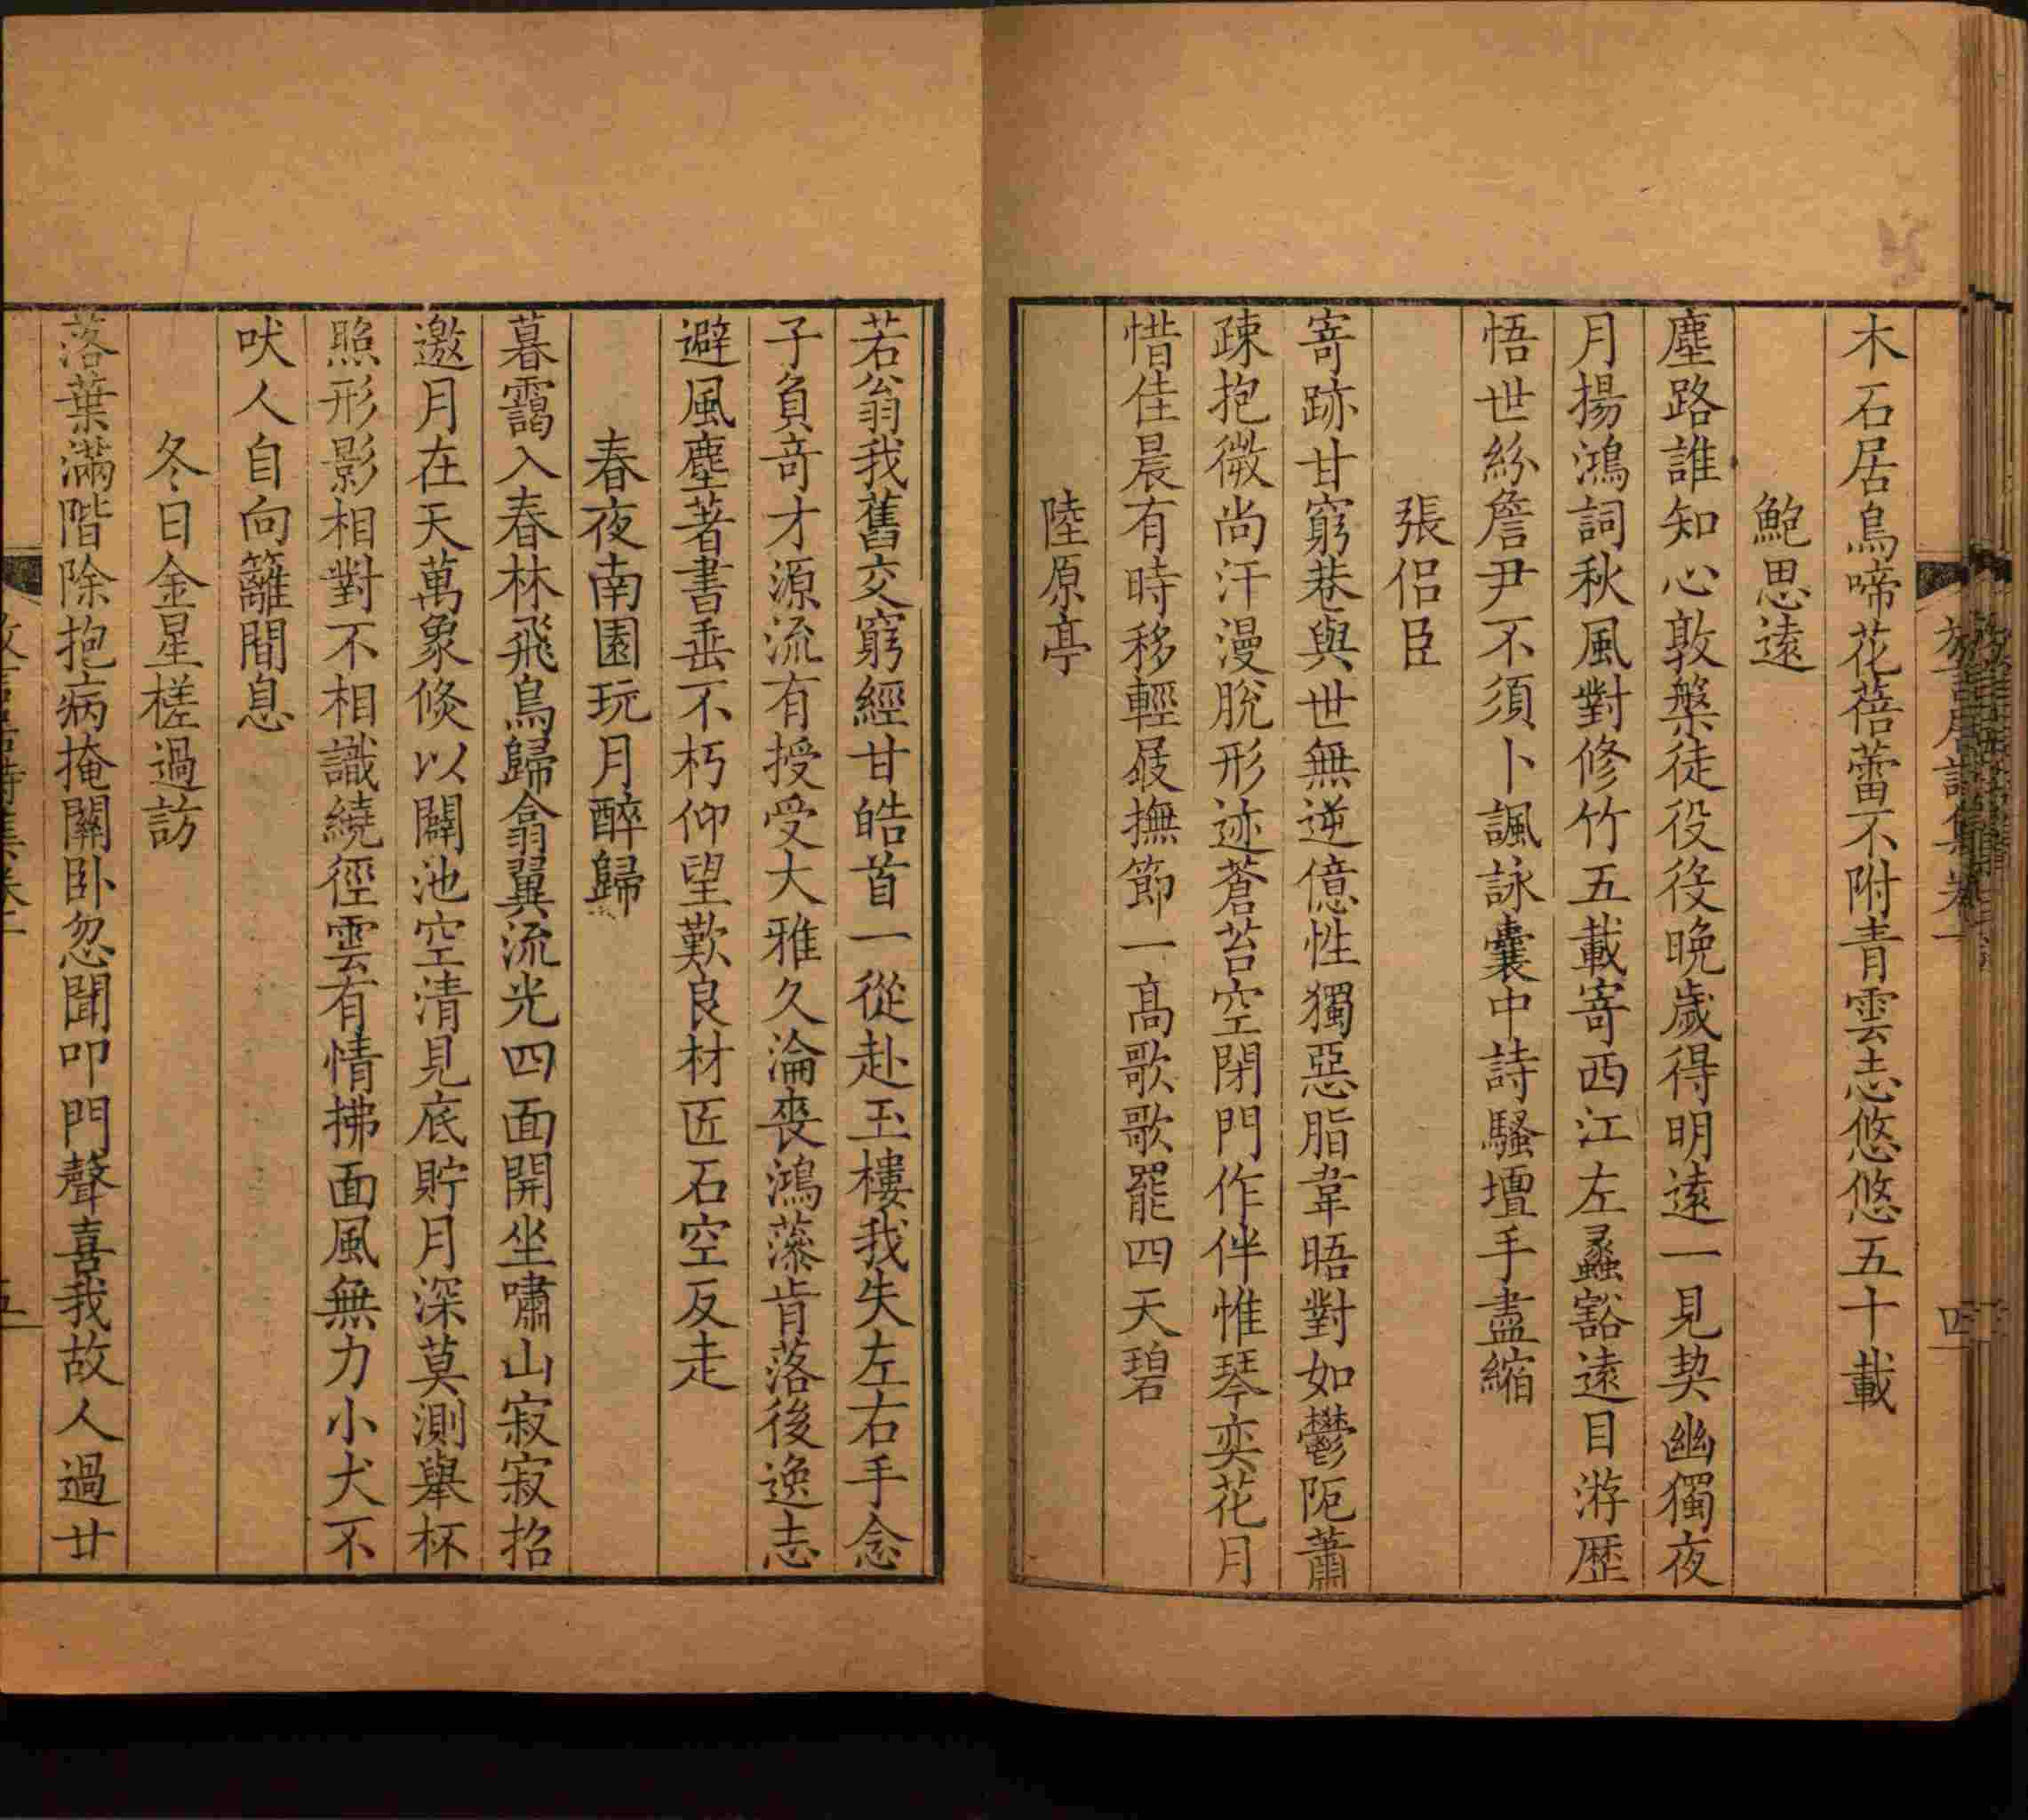 木石居鳥啼花蓓蕾不附青雲志悠悠五十載
鮑思遠
塵路誰知心敦槃徒役役晚歲得明遠一見契幽獨夜
月揚鴻詞秋風對修竹五載寄西江左蠡豁遠目游歷
悟世紛詹尹不須卜諷詠囊中詩騷壇手盡縮
張侶臣
寄跡甘窮巷與世無逆億性獨惡脂韋晤對如鬱阨蕭
疎抱微尚汗漫脫形迹蒼苔空閉門作伴惟琴奕花月
惜佳晨有時移輕屐撫節一高歌歌罷四天碧
陸原亭
若翁我舊交窮經甘皓首一從赴玉樓我失左右手念
子負竒才源流有授受大雅久淪喪鴻藻肯落後逸志
避風塵著書垂不朽仰望歎良材匠石空反走
春夜南園玩月醉歸
暮靄入春林飛鳥歸翕翼流光四面開坐嘯山寂寂招
邀月在天萬象倏以闢池空清見底貯月深莫測舉杯
照形影相對不相識繞徑雲有情拂面風無力小犬不
吠人自向籬間息
冬日金星槎過訪
落葉滿階除抱病掩關卧忽聞叩門聲喜我故人過廿